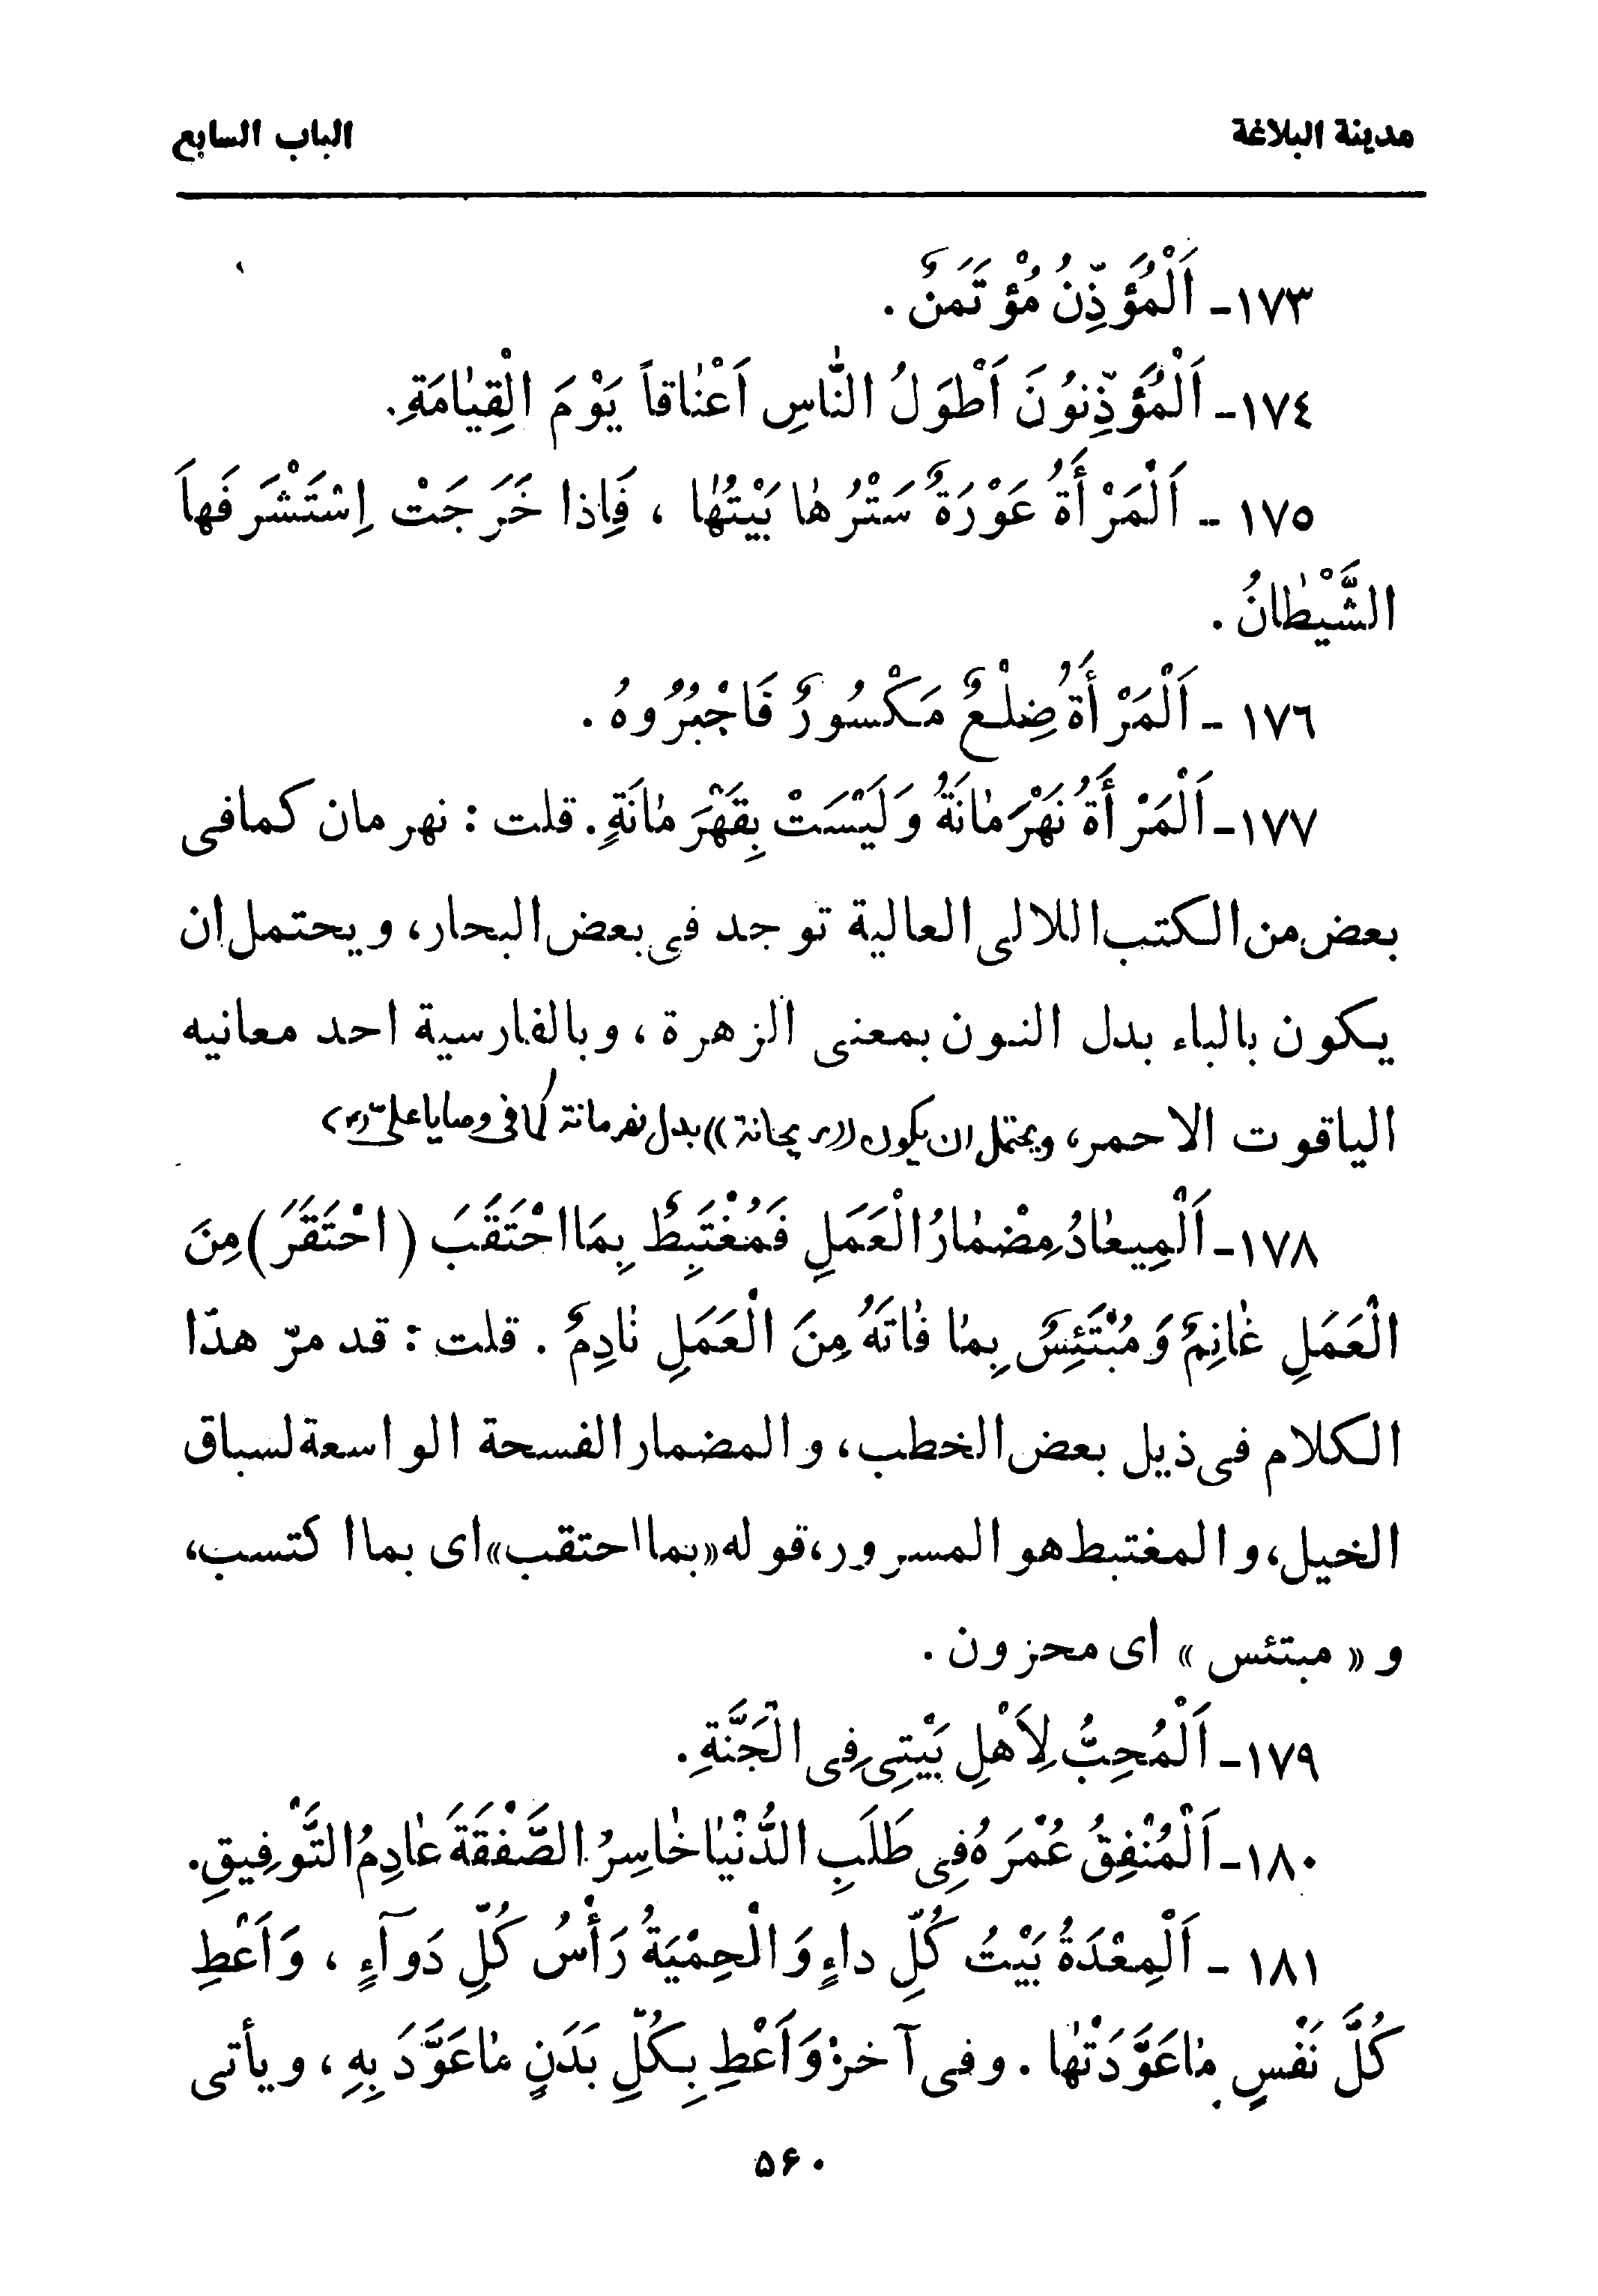 مدينة البلاغة
الباب السابع
١٧٣- اَلْمُؤَذِّنُ مُؤْتَمَنٌ .
١٧٤- اَلْمُؤَذِّنوُنَ اَطْوَلُ النّٰاسِ اَعْنٰاقاً يَوْمَ الْقِيٰامَةِ.
١٧٥ - اَلْمَرْأَةُ عَوْرَةٌ سَتْرُهٰا بَيْتُهٰا ، فَاِذا خَرَجَتْ اِسْتَشْرَفَهاَ
الشَّيْطٰانُ .
١٧٦ - اَلْمَرْأَةُ ضِلْعٌ مَكْسُورٌ فَاجْبُرُوهُ .
١٧٧- اَلْمَرْأَةُ نَهْرَمٰانَةٌ وَلَيْسَتْ بِقَهْرَمٰانَةٍ. قلت : نهرمان كمافى
بعض من الكتب اللالى العالية توجد فى بعض البحار، ويحتمل ان
يكون بالباء بدل النون بمعنى الزهرة ، وبالفارسية احد معانيه
الياقوت الاحمر، ويحتمل ان يكون ((ريحانة)) بدل نهرمانة كما فى وصايا علىّ (ع)
١٧٨- اَلْمِيعٰادُ مِضْمٰارُ الْعَمَلِ فَمُغْتَبِطٌ بِمَا احْتَقَبَ ( احْتَقَرَ ) مِنَ
الْعَمَلِ غٰانِمٌ وَ مُبْتَئِسٌ بِمٰا فٰاتَهُ مِنَ الْعَمَلِ نٰادِمٌ . قلت : قد مرّ هذا
الكلام فى ذيل بعض الخطب، و المضمار الفسحة الواسعة لسباق
الخيل، و المغتبط هو المسرور، قوله «بما احتقب» اى بما اكتسب،
و « مبتئس » اى محزون .
١٧٩- اَلْمُحِبُّ لِاَهْلِ بَيْتِى فِى الْجَنَّةِ.
١٨٠- اَلْمُنْفِقُ عُمْرَهُ فِى طَلَبِ الدُّنْيٰا خٰاسِرُ الصَّفْقَةَ عٰادِمُ التَّوْفِيقِ.
١٨١ - اَلْمِعْدَةُ بَيْتُ كُلِّ داءٍ وَ الْحِمْيَةُ رَأْسُ كُلِّ دَوآءٍ ، وَ اَعْطِ
كُلَّ نَفْسٍ مٰاعَوَّدَتْهٰا . وفى آخر: وَاَعْطِ بِكُلِّ بَدَنٍ مٰاعَوَّدَ بِهِ ، ويأتى
۵۶۰